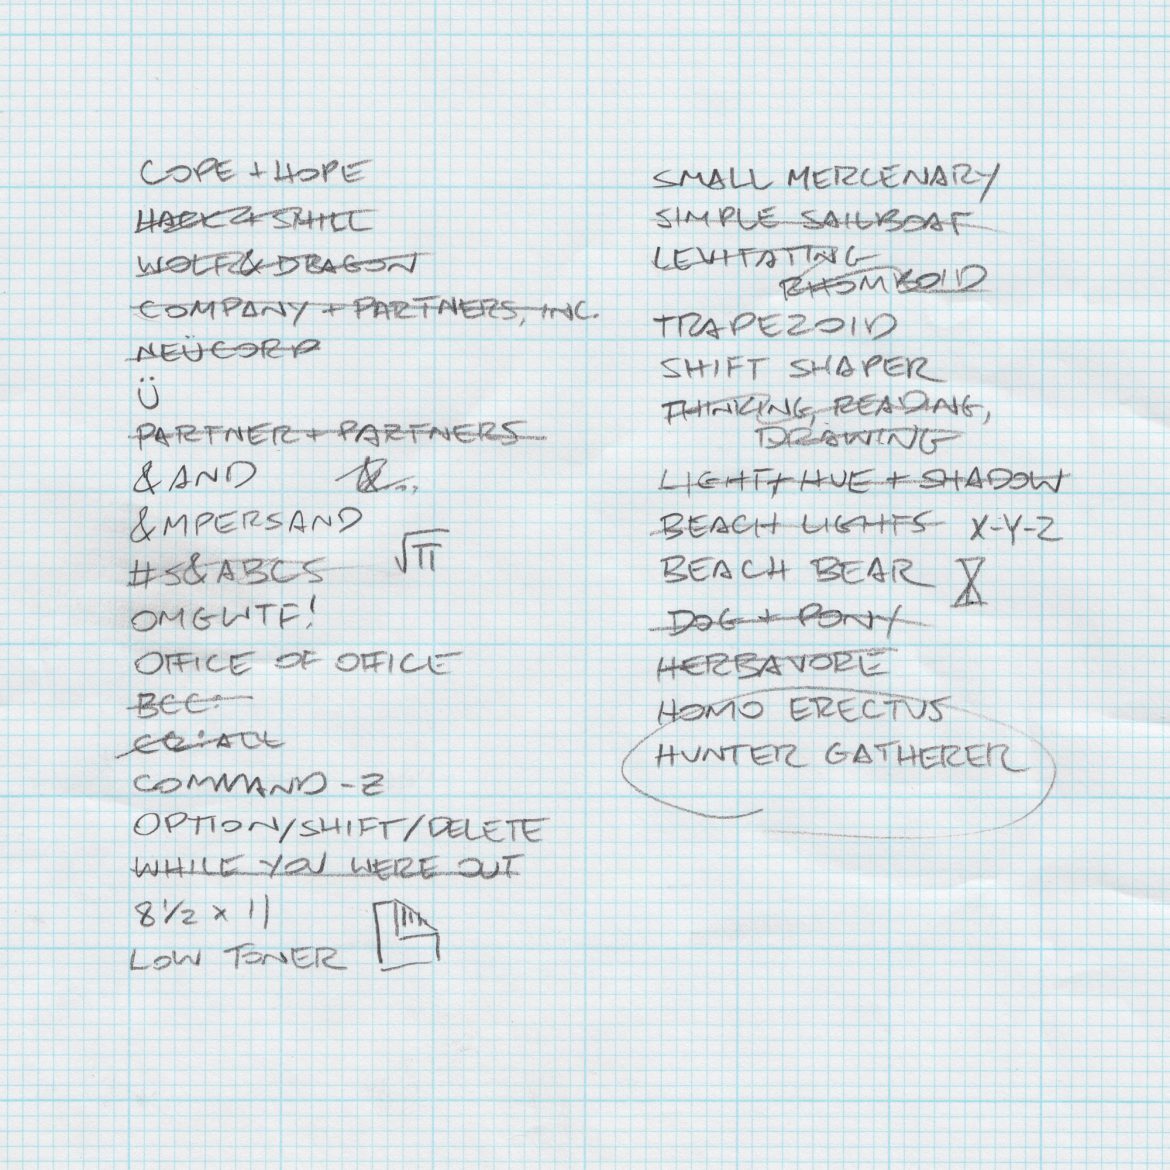 COPE + HOPE
HACK + SHILL
WOLF & DRAGON
COMPANY + PARTNERS, INC.
NEÜCORP
Ü
PARTNER + PARTNERS
& AND &..,
&MPERSAND
√π
#S&ABCS
OMGWTF!
OFFICE OF OFFICE
BCC:
CR:ALL
COMMAND-Z
OPTION/SHIFT/DELETE
WHILE YOU WERE OUT
8 1/2 x 11
LOW TONER
SMALL MERCENARY
SIMPLE SAILBOAT
LEVITATING
RHOMBOID
TRAPEZOID
SHIFT SHAPER
THINKING, READING,
DRAWING
LIGHT, HUE + SHADOW
BEACH LIGHTS X-Y-Z
BEACH BEAR
DOG + PONY
HERBAVORE
HOMO ERECTUS
HUNTER GATHERER